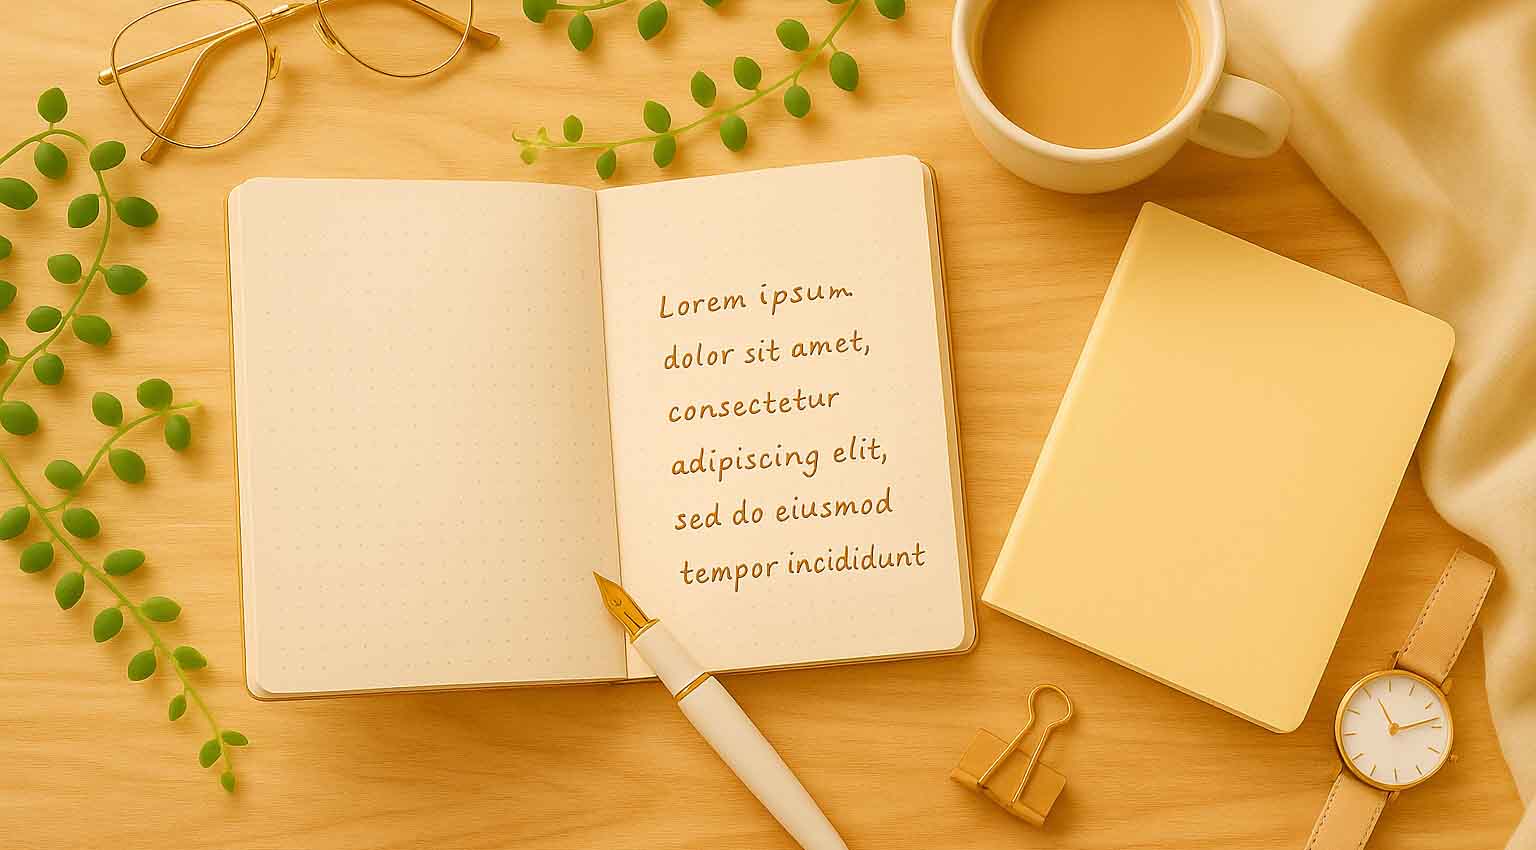 Lorem ipsum
dolor sit amet,
consectetur
adipiscing elit,
sed do eiusmod
tempor incididunt